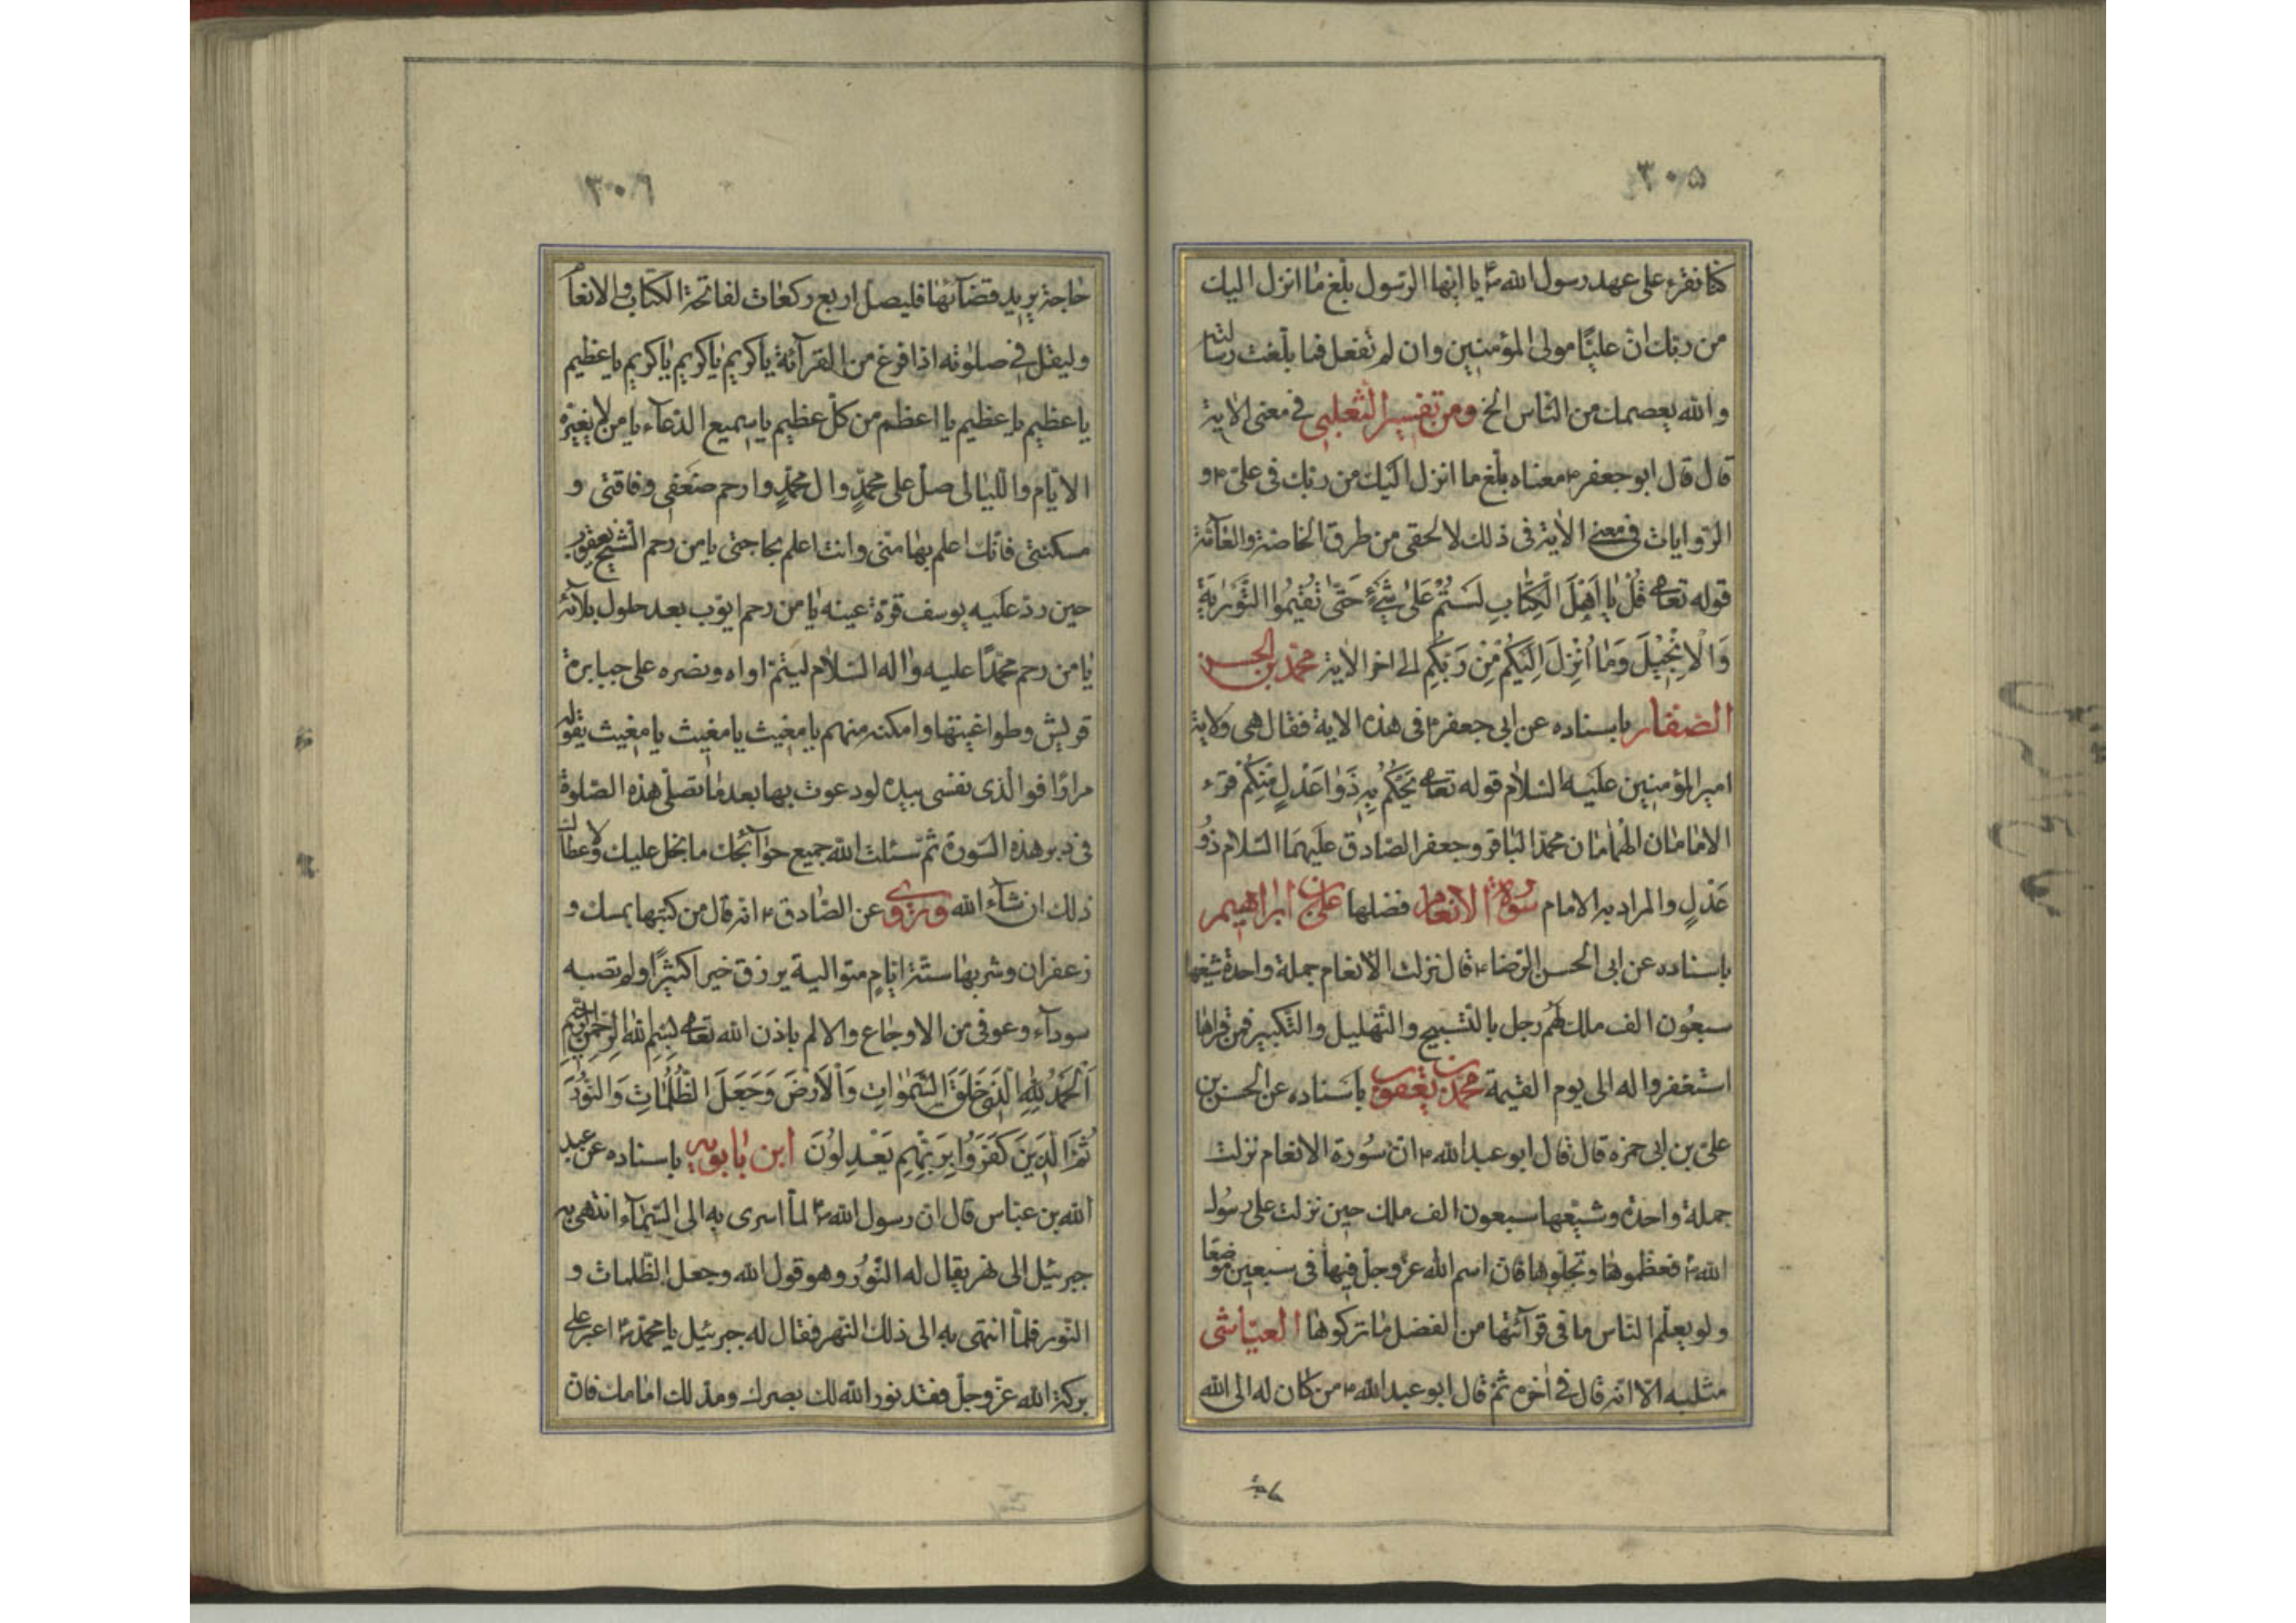 ۳۰۵
كنا نقرء علی عهد رسول الله ص يا ايها الرسول بلغ ما انزل اليك
من ربك ان عليًا مولی المؤمنين وان لم تفعل فما بلغت رسالته
والله يعصمك من الناس الخ ومن تفسير الثعلبی فی معنی الاية
قال قال ابو جعفر ع معناه بلغ ما انزل اليك من ربك فی علی ع و
الروايات فی معنی الاية فی ذلك لا تحصی من طرق الخاصة والعامة
قوله تعالی قُلْ يَا اَهْلَ الْكِتَابِ لَسْتُمْ عَلیٰ شَیْءٍ حَتّیٰ تُقيمُوا التَّوْریٰةَ
وَالْاِنْجيلَ وَمٰا اُنْزِلَ اِلَيْكُمْ مِنْ رَبِّكُمْ الی اخر الاية محمد بن الحسن
الصفار باسناده عن ابی جعفر ع فی هذه الاية فقال هی ولاية
امير المؤمنين عليه السلام قوله تعالی يَحْكُمُ بِهِ ذَوٰا عَدْلٍ مِنْكُمْ قرء
الامامان الهمامان محمد الباقر وجعفر الصادق عليهما السلام ذُو
عَدْلٍ والمراد به الامام سورة الانعام فضلها علی بن ابراهيم
باسناده عن ابی الحسن الرضا ع قال نزلت الانعام جملة واحدة شيعها
سبعون الف ملك لهم زجل بالتسبيح والتهليل والتكبير فمن قراها
استغفروا له الی يوم القيمة محمد بن يعقوب باسناده عن الحسن بن
علی بن ابی حمزة قال قال ابو عبدالله ع ان سورة الانعام نزلت
جملة واحدة وشيعها سبعون الف ملك حين نزلت علی رسول
الله ص فعظموها وتجلوها فان اسم الله عز وجل فيها فی سبعين موضعا
ولو يعلم الناس ما فی قرآئتها من الفضل ما تركوها العياشی
مثليه الا انه قال فی اخره ثم قال ابو عبدالله ع من كان له الی الله
۳۰۶
حاجة يريد قضآئها فليصل اربع ركعات لفاتحة الكتاب والانعام
وليقل فی صلوته اذا فرغ من القرآئة يا كريم يا كريم يا كريم يا عظيم
يا عظيم يا عظيم يا اعظم من كل عظيم يا سميع الدعآء يا من لا يغيره
الايام والليالی صل علی محمدٍ وال محمدٍ وارحم ضعفی وفاقتی و
مسكنتی فانك اعلم بها منی وانت اعلم بحاجتی يا من رحم الشيخ يعقوب
حين رد عليه يوسف قرة عينه يا من رحم ايوب بعد حلول بلآئه
يا من رحم محمدًا عليه واله السلام ليتم اواه ونصره علی جبابرة
قريش وطواغيتها وامكنه منهم يا مغيث يا مغيث يا مغيث يقوله
مرارًا فوالذی نفسی بيده لو دعوت بها بعد ما تصلی هذه الصلوة
فی دبر هذه السورة ثم سئلت الله جميع حوآئجك ما بخل عليك ولاعطاك
ذلك ان شآء الله وروی عن الصادق ع انه قال من كتبها بمسك و
زعفران وشربها ستة ايامٍ متوالية يرزق خيرا كثيرًا ولم تصبه
سودآء وعوفی من الاوجاع والالم باذن الله تعالی بِسْمِ اللهِ الرَّحْمٰنِ الرَّحيمِ
اَلْحَمْدُ لِلّٰهِ الَّذی خَلَقَ السَّمٰوٰاتِ وَالْاَرْضَ وَجَعَلَ الظُّلُمٰاتِ وَالنُّورَ
ثُمَّ الَّذينَ كَفَرُوا بِرَبِّهِمْ يَعْدِلُونَ ابن بابويه باسناده عن عبد
الله بن عباس قال ان رسول الله ص لما اسری به الی السمآء انتهی به
جبرئيل الی نهر يقال له النور وهو قول الله وجعل الظلمات و
النور فلما انتهی به الی ذلك النهر فقال له جبرئيل يا محمد ص اعبر علی
بركة الله عز وجل فقد نور الله لك بصرك ومد لك امامك فان